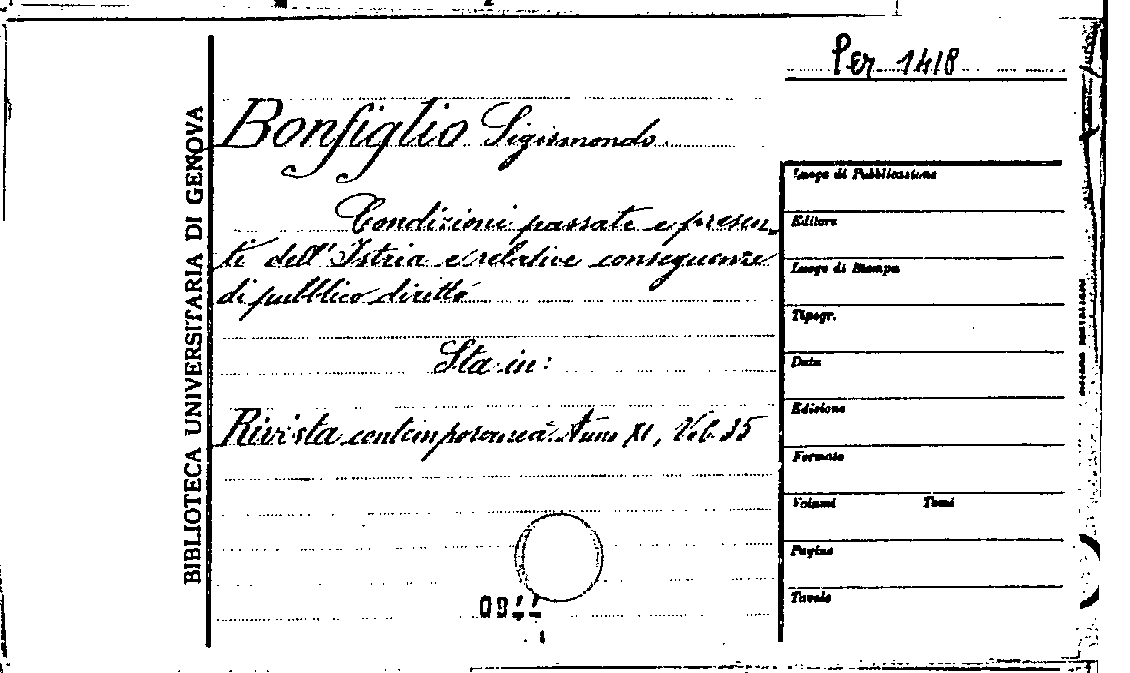 Per 1418
BIBLIOTECA UNIVERSITARIA DI GENOVA
Bonfiglio Sigismondo.
Condizioni passate e presen-
ti dell'Istria e relative conseguenze
di pubblico diritto
Sta in:
Rivista contemporanea. Anno XI, Vol. 35
Luogo di Pubblicazione
Editore
Luogo di Stampa
Tipogr.
Data
Edizione
Formato
Volumi Tomi
Pagine
Tavole